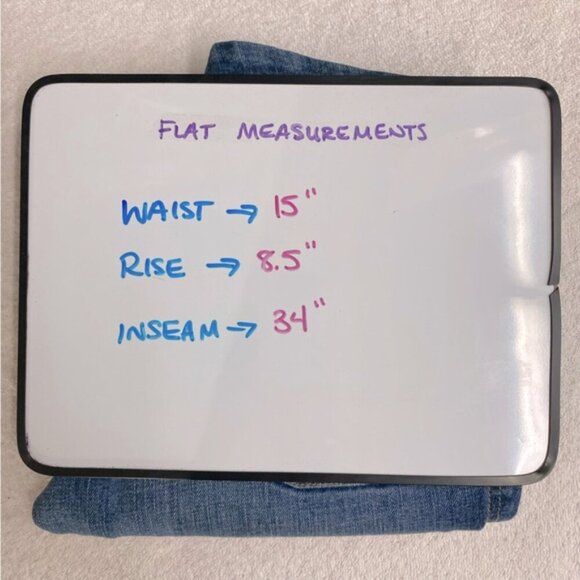 FLAT MEASUREMENTS
WAIST → 15"
RISE → 8.5"
INSEAM → 34"